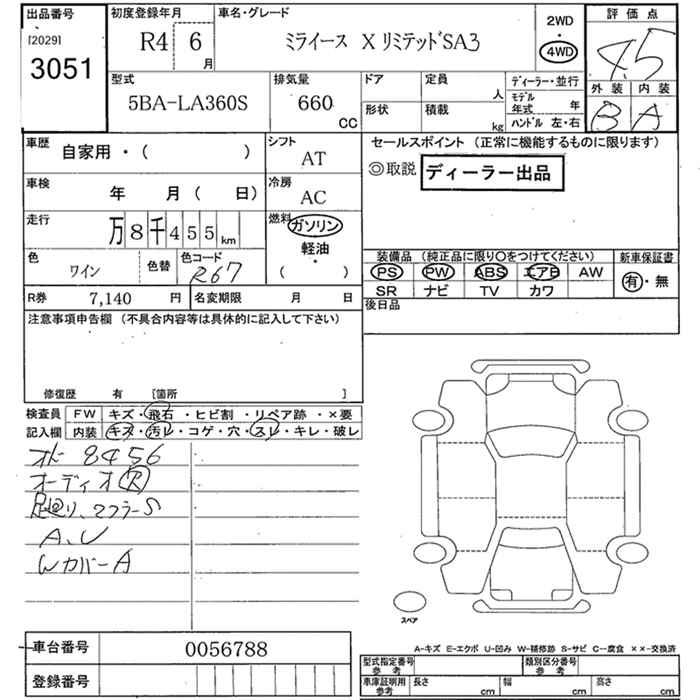 出品番号
[2029]
3051
初度登録年月
R4 6 月
車名・グレード
ミライース X リミテッドSA3
2WD
・
4WD
評価点
4.5
型式
5BA-LA360S
排気量
660 CC
ドア
定員 人
形状
積載 kg
ディーラー・並行
モデル年式 年
ハンドル 左・右
外装 内装
B A
車歴 自家用・( )
シフト AT
車検 年 月( 日)
冷房 AC
走行 万 8 千 4 5 5 km
燃料 ガソリン
・
軽油
・
( )
色 ワイン
色替
色コード R67
R券 7,140 円
名変期限 月 日
セールスポイント (正常に機能するものに限ります)
◎取説 ディーラー出品
装備品 (純正品に限り〇をつけてください)
新車保証書
PS PW ABS エアB AW
有・無
SR ナビ TV カワ
後日品
注意事項申告欄 (不具合内容等は具体的に記入して下さい)
修復歴 有 [箇所 ]
検査員
記入欄
FW キズ・飛石・ヒビ割・リペア跡・×要
内装 キズ・汚レ・コゲ・穴・スレ・キレ・破レ
オド 8456
オーディオ R
足廻り、マフラーS
A、U
Wカバー A
スペア
車台番号 0056788
登録番号
A-キズ E-エクボ U-凹み W-補修跡 S-サビ C-腐食 ××-交換済
型式指定番号 参考
類別区分番号
車庫証明用 参考
長さ cm
幅 cm
高さ cm